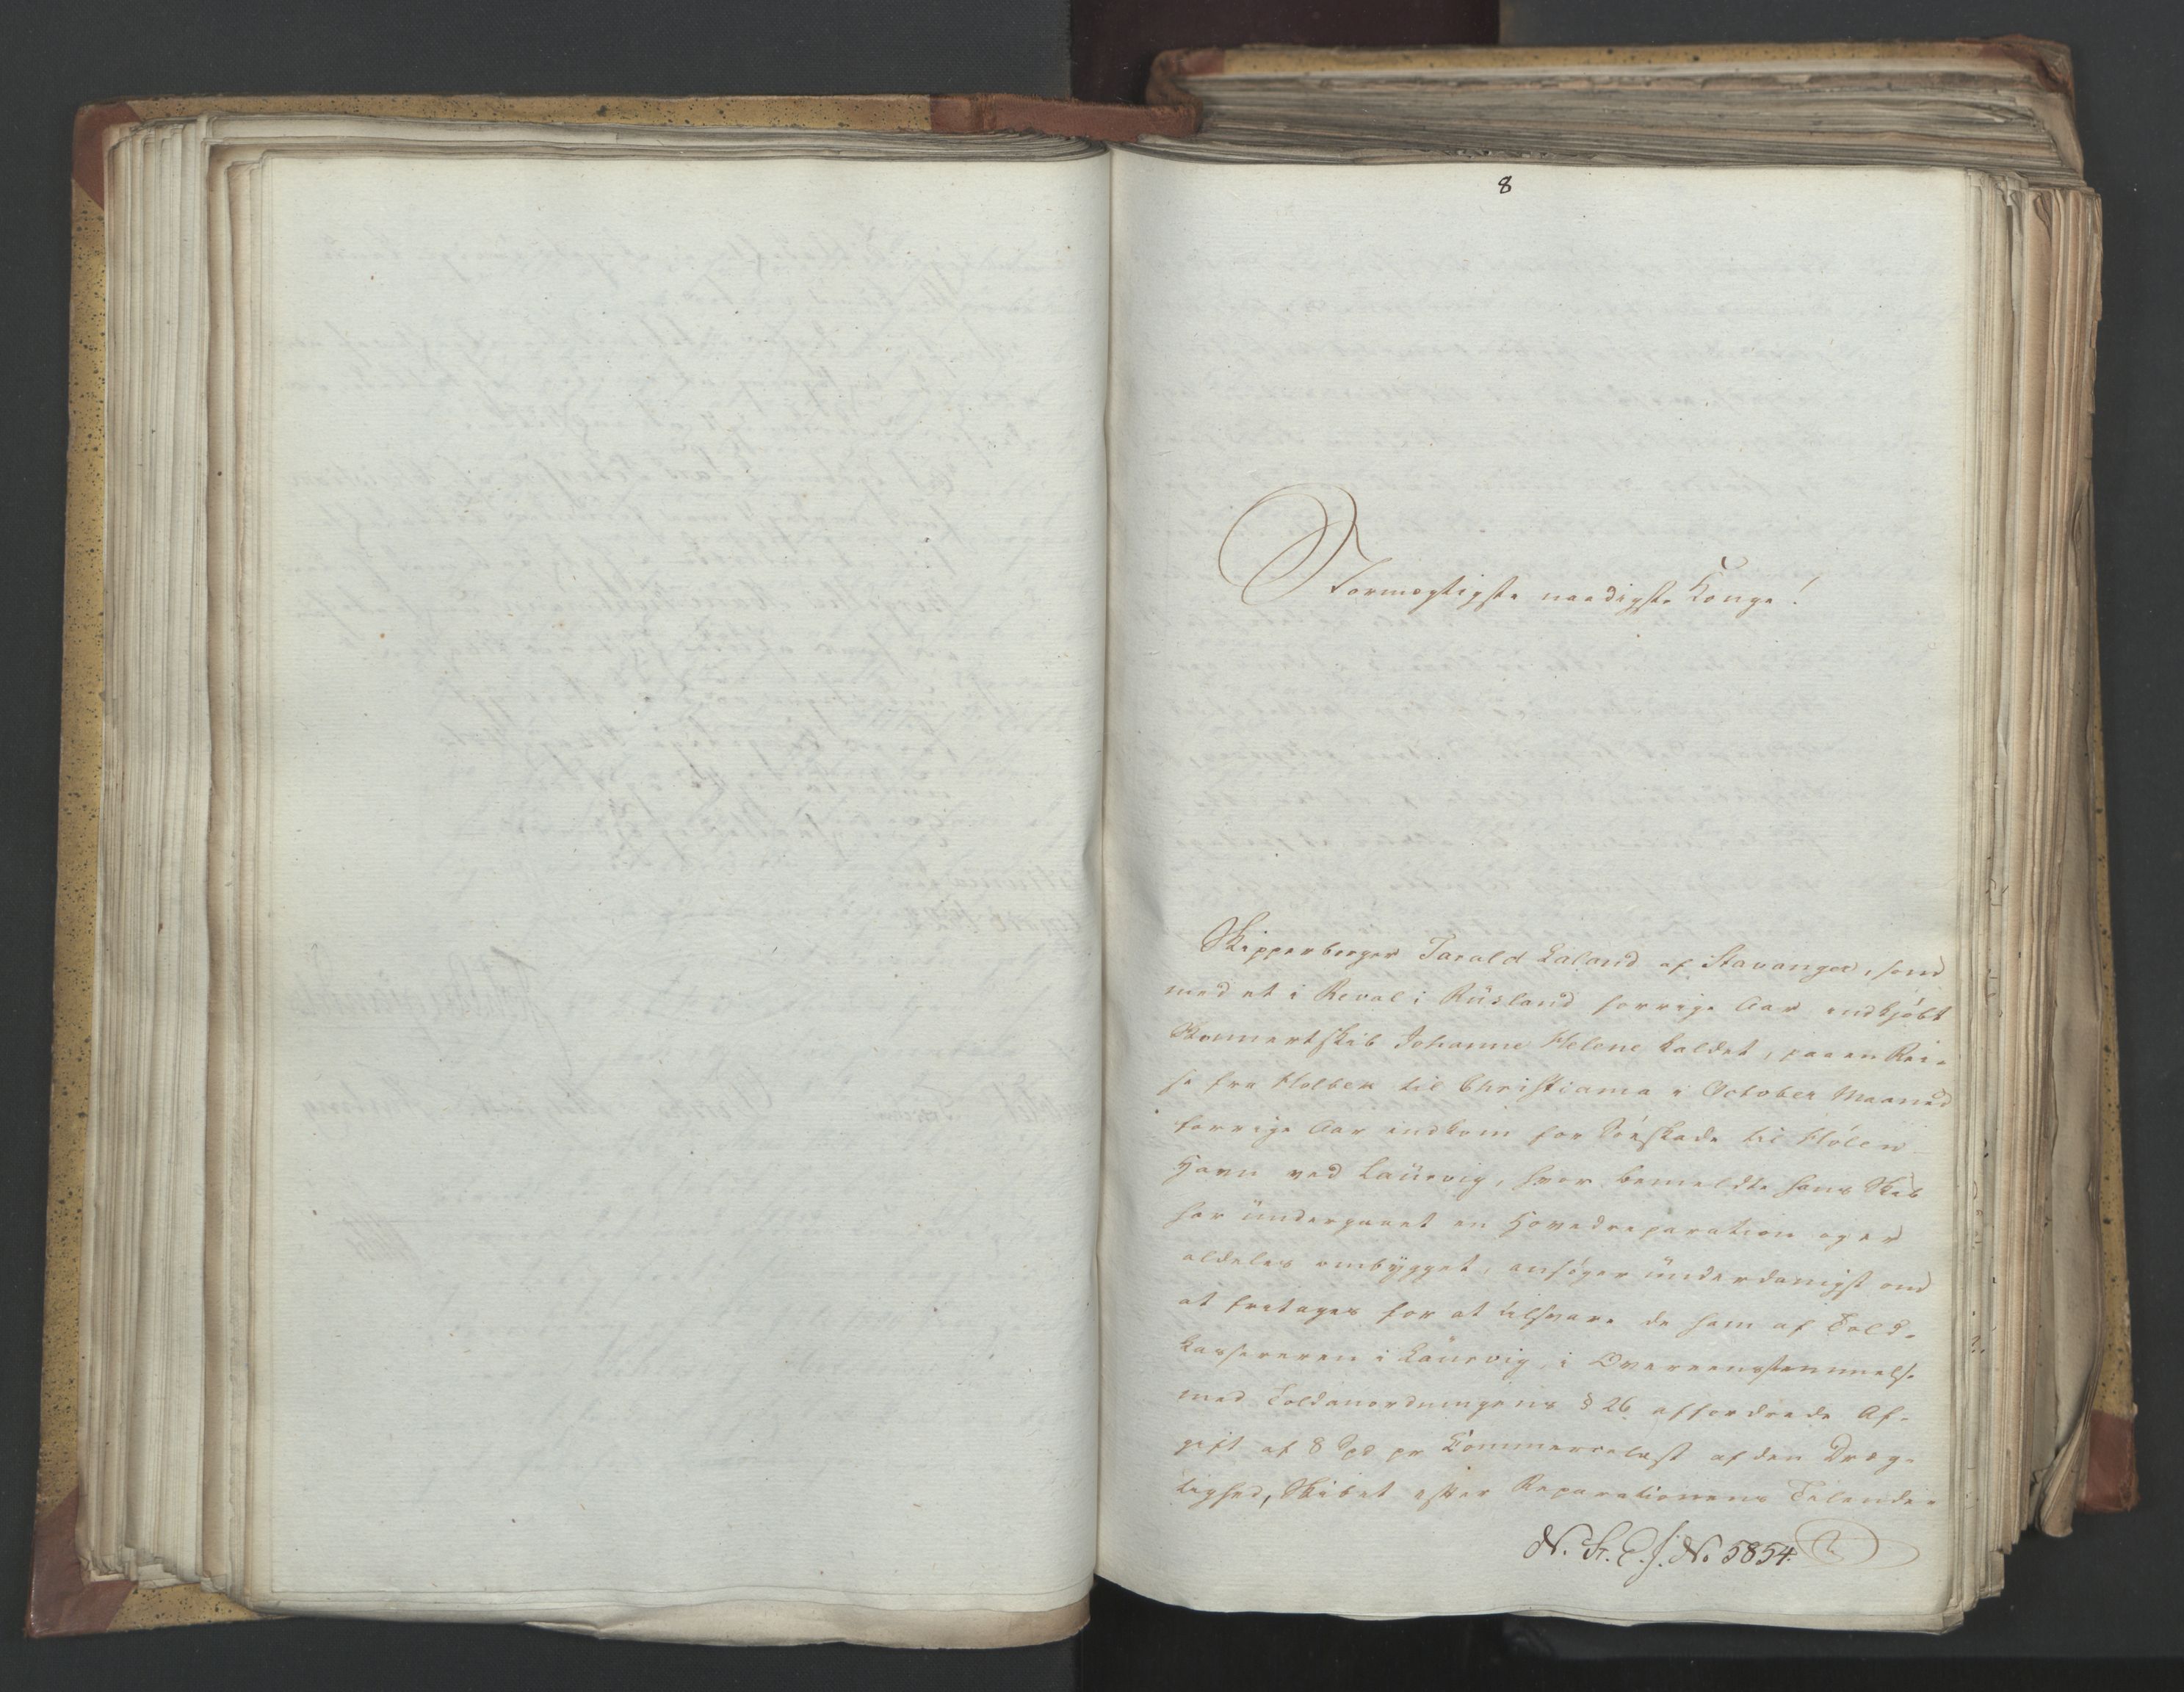 8
Stormægtigste naadigste Konge!
Skipperborger Tarald Laland af Stavanger, som
med et i Reval i Rusland forrige Aar indkjøbt
Skonnertskib Johanne Helene kaldet, paa en Rei-
se fra Holbek til Christiania i October Maaned
forrige Aar indkom for Søeskade til Hølen
Havn ved Laurvig, hvor bemeldte hans Skib
har undergaaet en Hovedreparation og er
aldeles ombygget, ansøger underdanigst om
at fritages for at tilsvare de ham af Told-
kassereren i Laurvig, i Overeensstemmelse
med Toldanordningens § 26 affordrede Af-
gift af 8 Spd pr Commercelæst af den Dræg-
tighed, Skibet efter Reparationens Tilende-
N. St. E. J. No 5854.